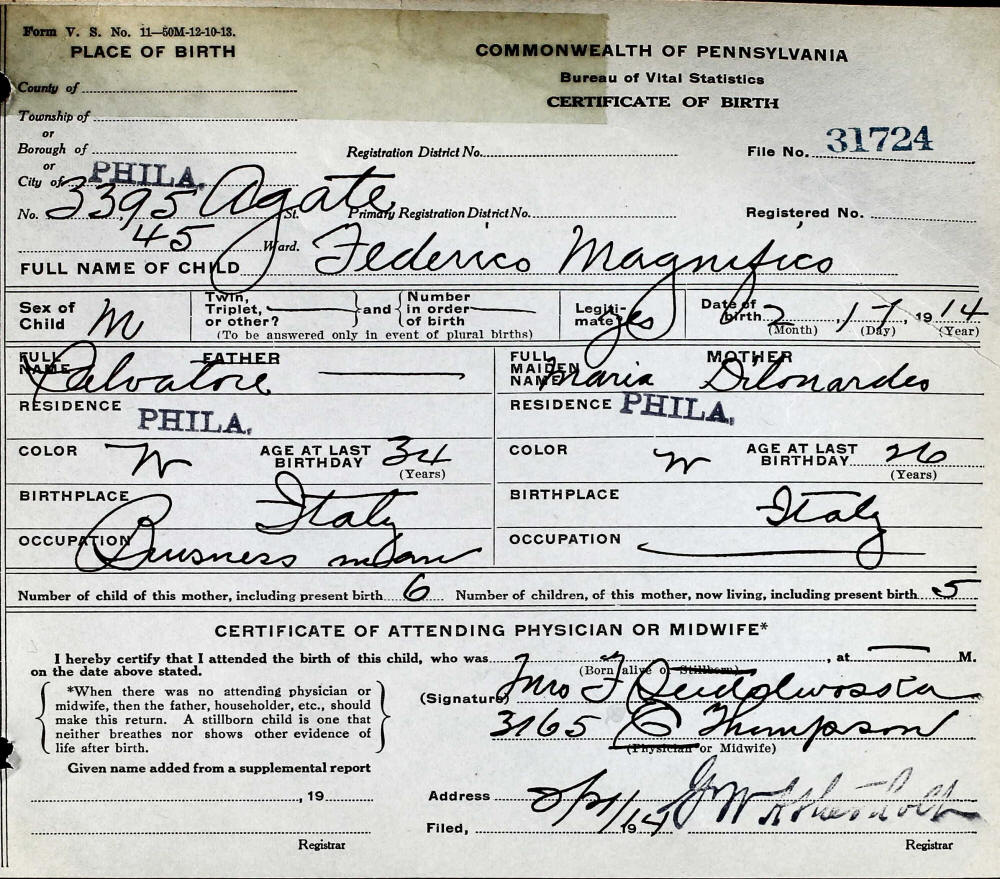 Form V. S. No. 11—50M-12-10-13.
PLACE OF BIRTH
COMMONWEALTH OF PENNSYLVANIA
Bureau of Vital Statistics
CERTIFICATE OF BIRTH
County of
Township of
or
Borough of
or
City of PHILA.
Registration District No.
File No. 31724
No. 3395 Agate St.
Primary Registration District No.
Registered No.
45 Ward.
FULL NAME OF CHILD Federico Magnifico
Sex of Child M
Twin, Triplet, or other?
and
Number in order of birth
(To be answered only in event of plural births)
Legitimate? yes
Date of birth 2, 17, 1914
(Month) (Day) (Year)
FATHER
FULL NAME Salvatore
MOTHER
FULL MAIDEN NAME Maria Dilonardes
RESIDENCE PHILA.
RESIDENCE PHILA.
COLOR W
AGE AT LAST BIRTHDAY 34
(Years)
COLOR W
AGE AT LAST BIRTHDAY 26
(Years)
BIRTHPLACE Italy
BIRTHPLACE Italy
OCCUPATION Buisness man
OCCUPATION
Number of child of this mother, including present birth 6 Number of children, of this mother, now living, including present birth 5
CERTIFICATE OF ATTENDING PHYSICIAN OR MIDWIFE*
I hereby certify that I attended the birth of this child, who was , at M.
on the date above stated.
(Born alive or Stillborn)
*When there was no attending physician or
midwife, then the father, householder, etc., should
make this return. A stillborn child is one that
neither breathes nor shows other evidence of
life after birth.
(Signature) Mrs F
3165 E Thompson
(Physician or Midwife)
Given name added from a supplemental report
, 19
Registrar
Address
Filed, 2/21/1914
Registrar